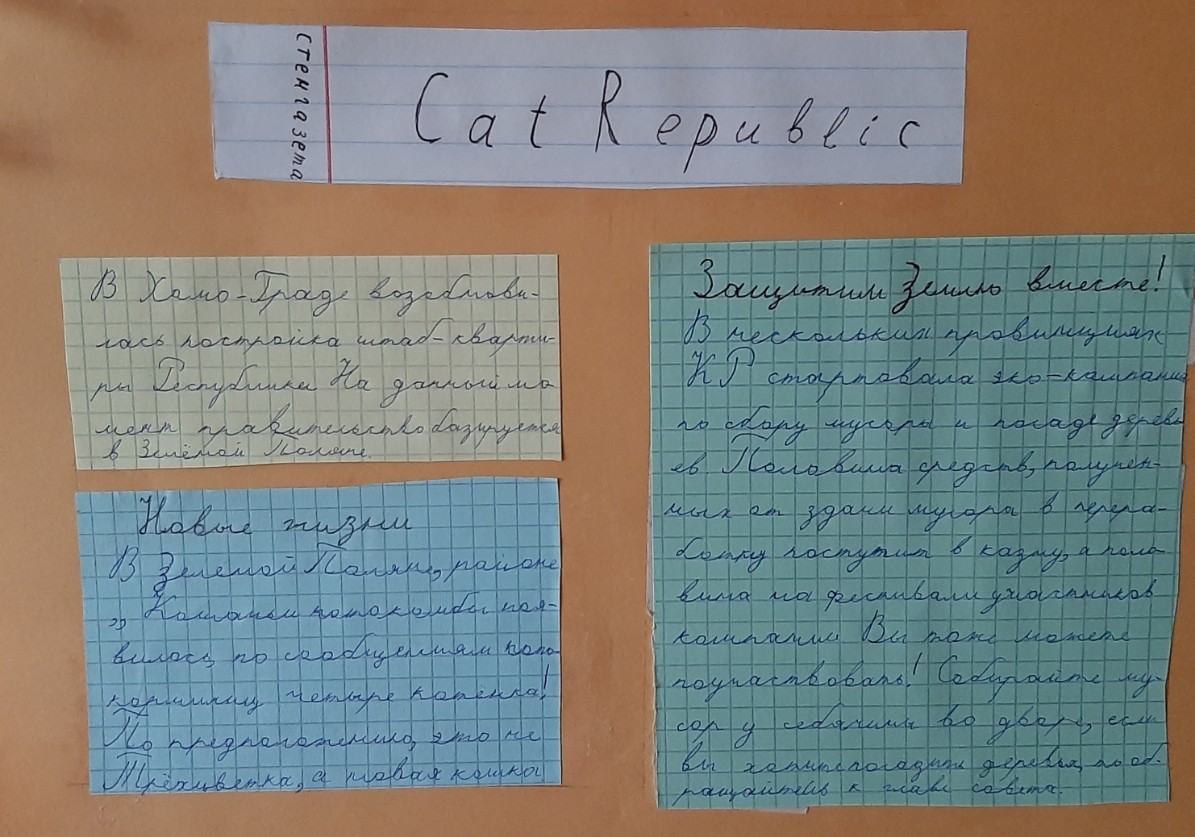 стенгазета
Cat Republic
В Хамо-Граде возобнови-
лась постройка штаб-кварти-
ры Республики На данный мо
мент правительство базируется
в Зелёной Поляне.
Новые жизни
В Зеленой Поляне, районе
„ Кошачьи катакомбы поя-
вилось, по сообщениям кото
кормилиц четыре котенка!
По предположению, это не
Трёхцветка, а новая кошка
Защитим Землю вместе!
В нескольких провинциях
КР стартовала эко-кампания
по сбору мусора и посаде деревь
ев Половина средств, получен-
ных от здачи мусора в перера-
ботку поступит в казну, а поло
вина на фестивали участников
компании Вы тоже можете
поучаствовать! Собирайте му-
сор у себя или во дворе, если
вы хотите посадить деревья, то об-
ращайтесь к главе совета.